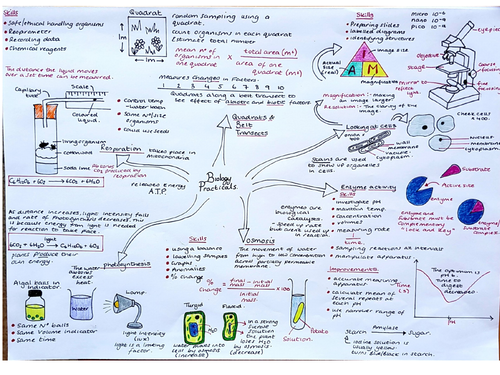 Skills
• Safe/ethical handling organisms
• Respirometer
• Recording data
• Chemical reagents
The distance the liquid moves
over a set time can be measured.
Capillary tube
Scale
Coloured liquid.
living organism
cottonwool
Soda lime
Absorbs CO₂ produced by respiration
Respiration
takes place in mitochondria
C₆H₁₂O₆ + 6O₂ → 6CO₂ + 6H₂O
released energy A.T.P.
• Control temp
- water bath
• Same No/size organisms
• Could use seeds
Quadrat
1m
1m
random sampling using a quadrat.
Count organisms in each quadrat
Estimate total number
mean Nº of organisms in one quadrat × total area (m²)
area of one quadrat (m²)
Measures Changes in Factors.
1 2 3 4 5 6 7 8 9 10
Quadrats along a belt transect to
see effect of abiotic and biotic factors
Quadrats & Belt Transects
Biology Practicals.
Skills
• Preparing slides
• Labelled diagrams
• Identifying structures
milli 10⁻³
micro 10⁻⁶
nano 10⁻⁹
pico 10⁻¹²
I
A M
image size
Actual size (real)
magnification
eyepiece
objective
stage
mirror
Coarse focus
fine focus
Magnification:- making an image larger
Resolution:- The clarity of the image
Looking at cells
onion cell
cell wall
membrane
vacuole
cytoplasm
Cheek cells
nucleus
membrane
cytoplasm
Stains are used to show up organelles in cells.
Enzyme activity
enzymes are biological catalysts.
Speed up rate but don't used up in reaction.
Skills
• investigate pH
• maintain temp.
• Concentration
• volumes
• measuring rate
• time
• Sampling reactions at intervals
• manipulate apparatus
Substrate
Active site
enzyme
Enzyme and Substrate must be Complementary "lock and key"
enzyme/substrate complex
Improvements
• accurate measuring apparatus
• calculate mean of several repeats at each pH
• use narrower range of pH
Time (s)
pH
The optimum is pH
Time to digest decreased
Starch Amylase → Sugar.
iodine solution is usually yellow turns blue/black in starch.
As distance increases, light intensity falls
and rate of photosynthesis decreases. This is
because energy from light is needed
for reaction to take place
6CO₂ + 6H₂O → C₆H₁₂O₆ + 6O₂
light
plants produce their own energy.
photosynthesis
Algal balls in indicator
The water absorbs excess heat.
Water
Lamp
light intensity (lux)
light is a limiting factor
• Same Nº balls
• Same volume indicator
• Same time
Skills
• using a balance
• labelling samples
• Graphs
• Anomalies
• % change
% change = final - initial mass / initial mass × 100
Osmosis
The movement of water from high to low concentration across partially permeable membrane
Turgid
Flaccid
water passes into cell by osmosis (increase)
In a strong sucrose solution the plant loses H₂O by osmosis (decrease)
Potato
Solution.